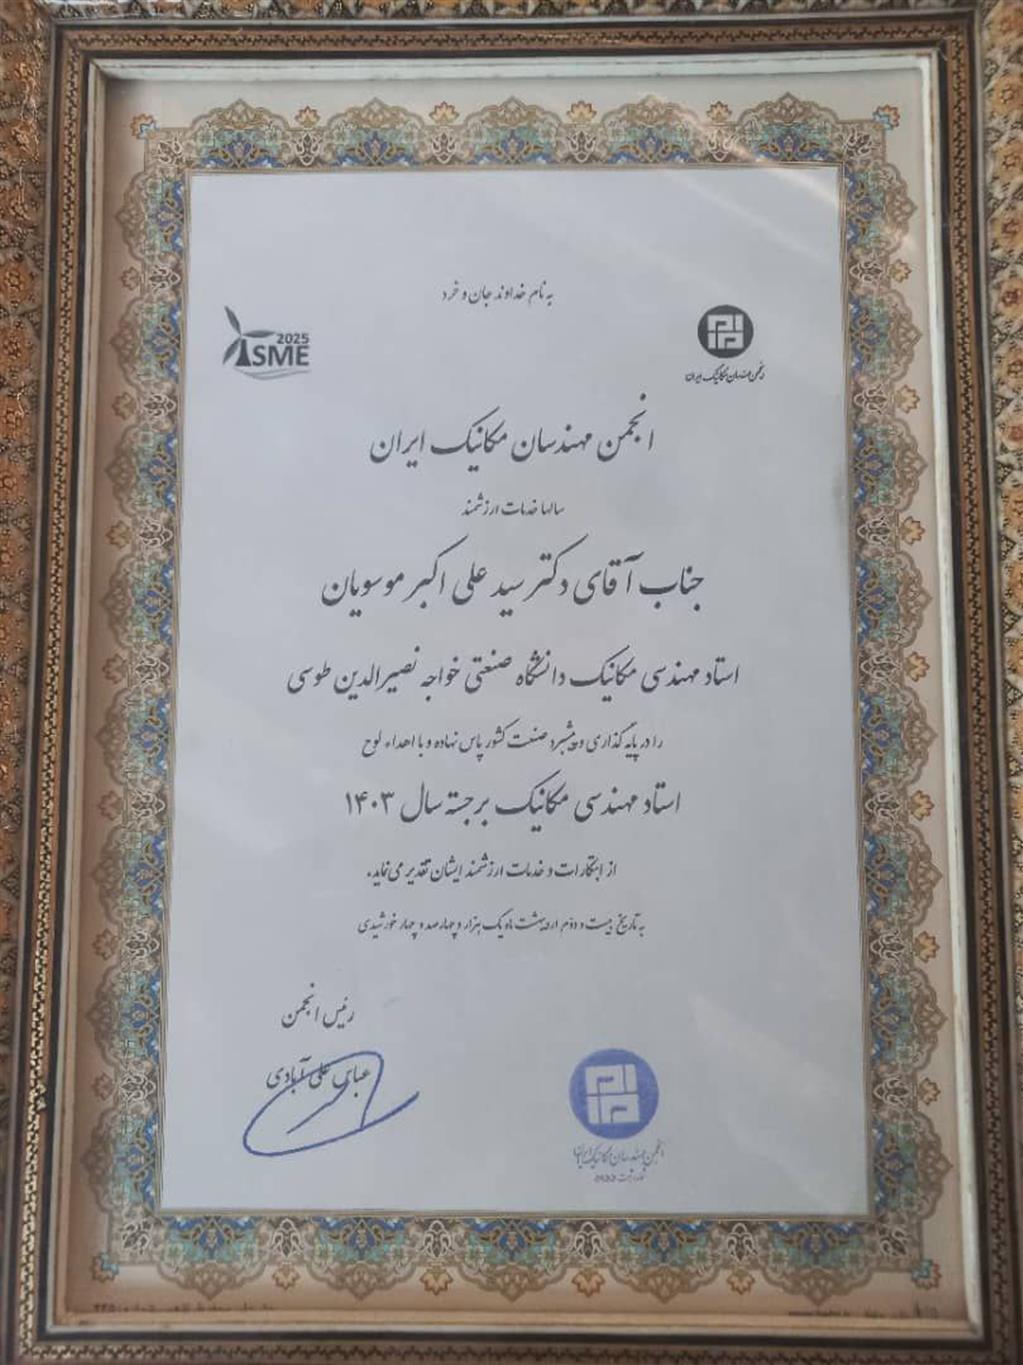 به نام خداوند جان و خرد
2025
ISME
انجمن مهندسان مکانیک ایران
انجمن مهندسان مکانیک ایران
سالها خدمات ارزشمند
جناب آقای دکتر سید علی اکبر موسویان
استاد مهندسی مکانیک دانشگاه صنعتی خواجه نصیرالدین طوسی
را در پایه گذاری و پیشبرد صنعت کشور پاس نهاده و با اهداء لوح
استاد مهندسی مکانیک برجسته سال ۱۴۰۳
از ابتکارات و خدمات ارزشمند ایشان تقدیر می نماید.
به تاریخ بیست و دوم اردیبهشت ماه یک هزار و چهارصد و چهار خورشیدی
رئیس انجمن
عباس علی آبادی
انجمن مهندسان مکانیک ایران